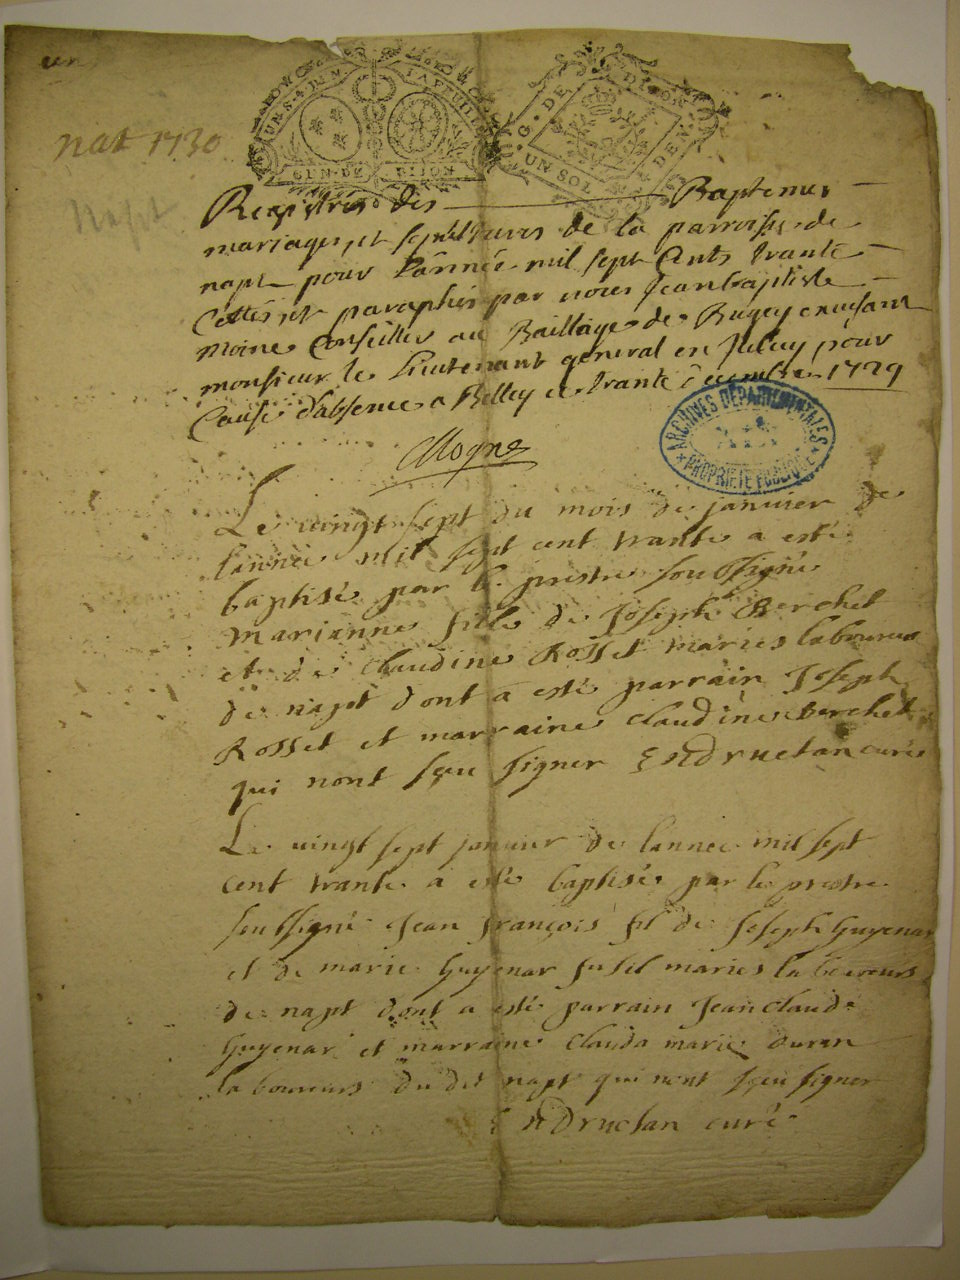 un
nat 1730
Napt
GEN. DE DIJON
G. DE DIJON
UN SOL
Registres des Baptemes
mariages et sepultures de la parroisse de
napt pour L'année mil sept Cents trante
Cottés et paraphés par nous Jeanbaptiste
moine Conseiller au Bailliage de Bugey exersant
monsieur le Lieutenant general en pour
Cause d'absence a Belley ce trante decembre 1729
ARCHIVES DÉPARTEMENTALES
AIN
PROPRIÉTÉ PUBLIQUE
Le vingt sept du mois de janvier de
lannee mil sept cent trante a esté
baptisée par le prestre soussigné
Marianne fille de Joseph Berchet
et de claudine Rosset maries laboureurs
de napt dont a esté parrain Joseph
Rosset et marraine claudine Berchet
qui nont sçeu signer Druclan curé
Le vingt sept janvier de lannee mil sept
cent trante a esté baptisé par le prestre
soussigné Jean françois fil de Joseph Guyenar
et de marie Guyenar maries laboureurs
de napt dont a esté parrain Jean claude
Guyenar et marraine Clauda marie
laboureurs du dit napt qui nont sçeu signer
Druclan curé